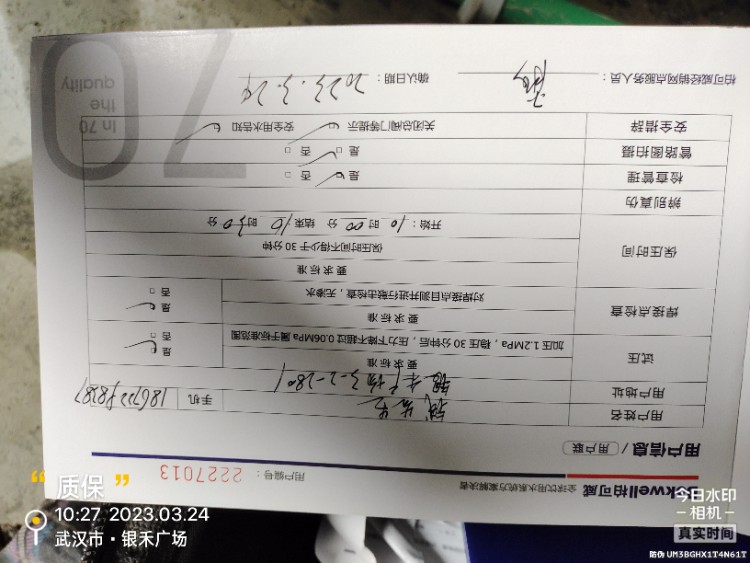 Bekwell柏可威 全球饮用水系统方案解决者
用户编号：2227013
用户信息 / 用户联
用户姓名
手机
用户地址 银禾广场3-2-2801
试压 要求标准
加压1.2MPa，稳压30分钟后，压力下降不超过0.06MPa属于标准范围
是 否
焊接点检查 要求标准
对焊接点目测并进行敲击检查，无渗水
是 否
保压时间 要求标准
保压时间不得少于30分钟
开始：10时00分 结束10时30分
辨别真伪
检查管理 是 否
管路图拍摄 是 否
安全措辞 关闭总阀门等提示 安全用水告知
柏可威经销网点服务人员：
确认日期：2023.3.24
In 70
the
quality
70
质保
10:27 2023.03.24
武汉市·银禾广场
今日水印
相机
真实时间
防伪 UM3BGHX1T4N61T